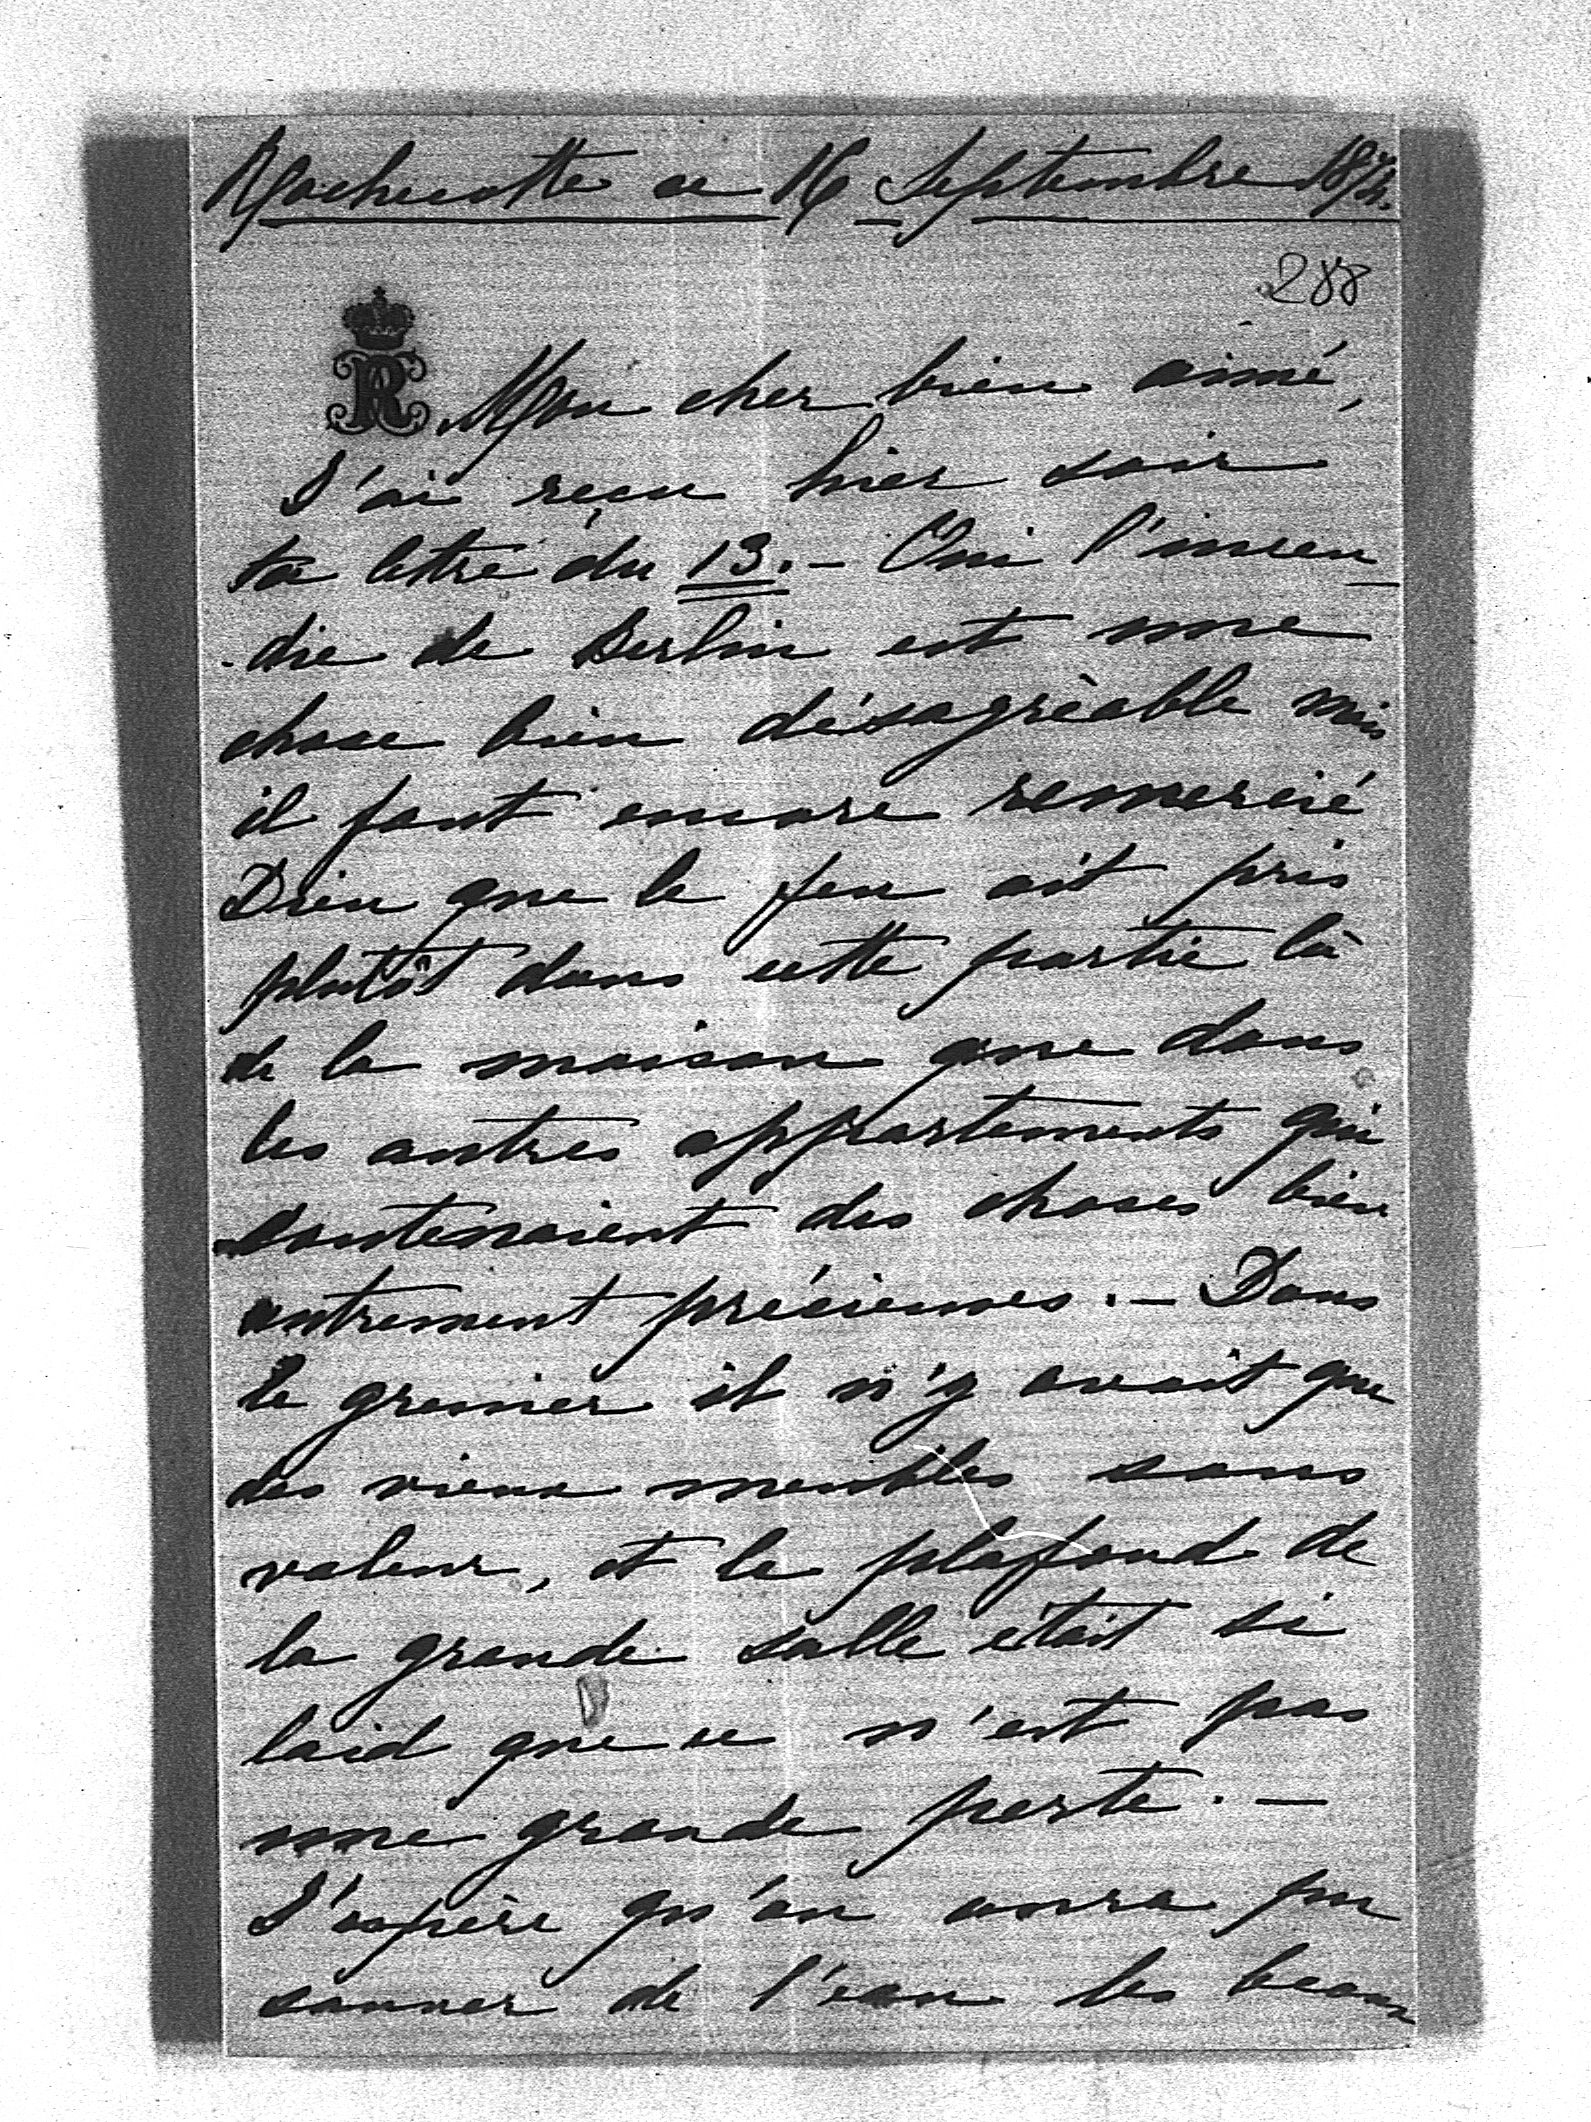 Rochecotte ce 16 Septembre
288
Mon cher bien aimé,
J'ai reçu hier soir
ta letre du 13. - Oui l'incen
-die de Berlin est une
chose bien désagrèable mais
il faut encore remercié
Dieu que le feu ait pris
plutôt dans cette partie là
de la maison que dans
les autres appartements qui
contenaient des choses bien
autrement précieuses. - Dans
le grenier il n'y avait que
des vieux meubles sans
valeur, et le plafond de
la grande salle était si
laid que ce n'est pas
une grande perte. -
J'espère qu'on aura pu
sauver de l'eau les beaux